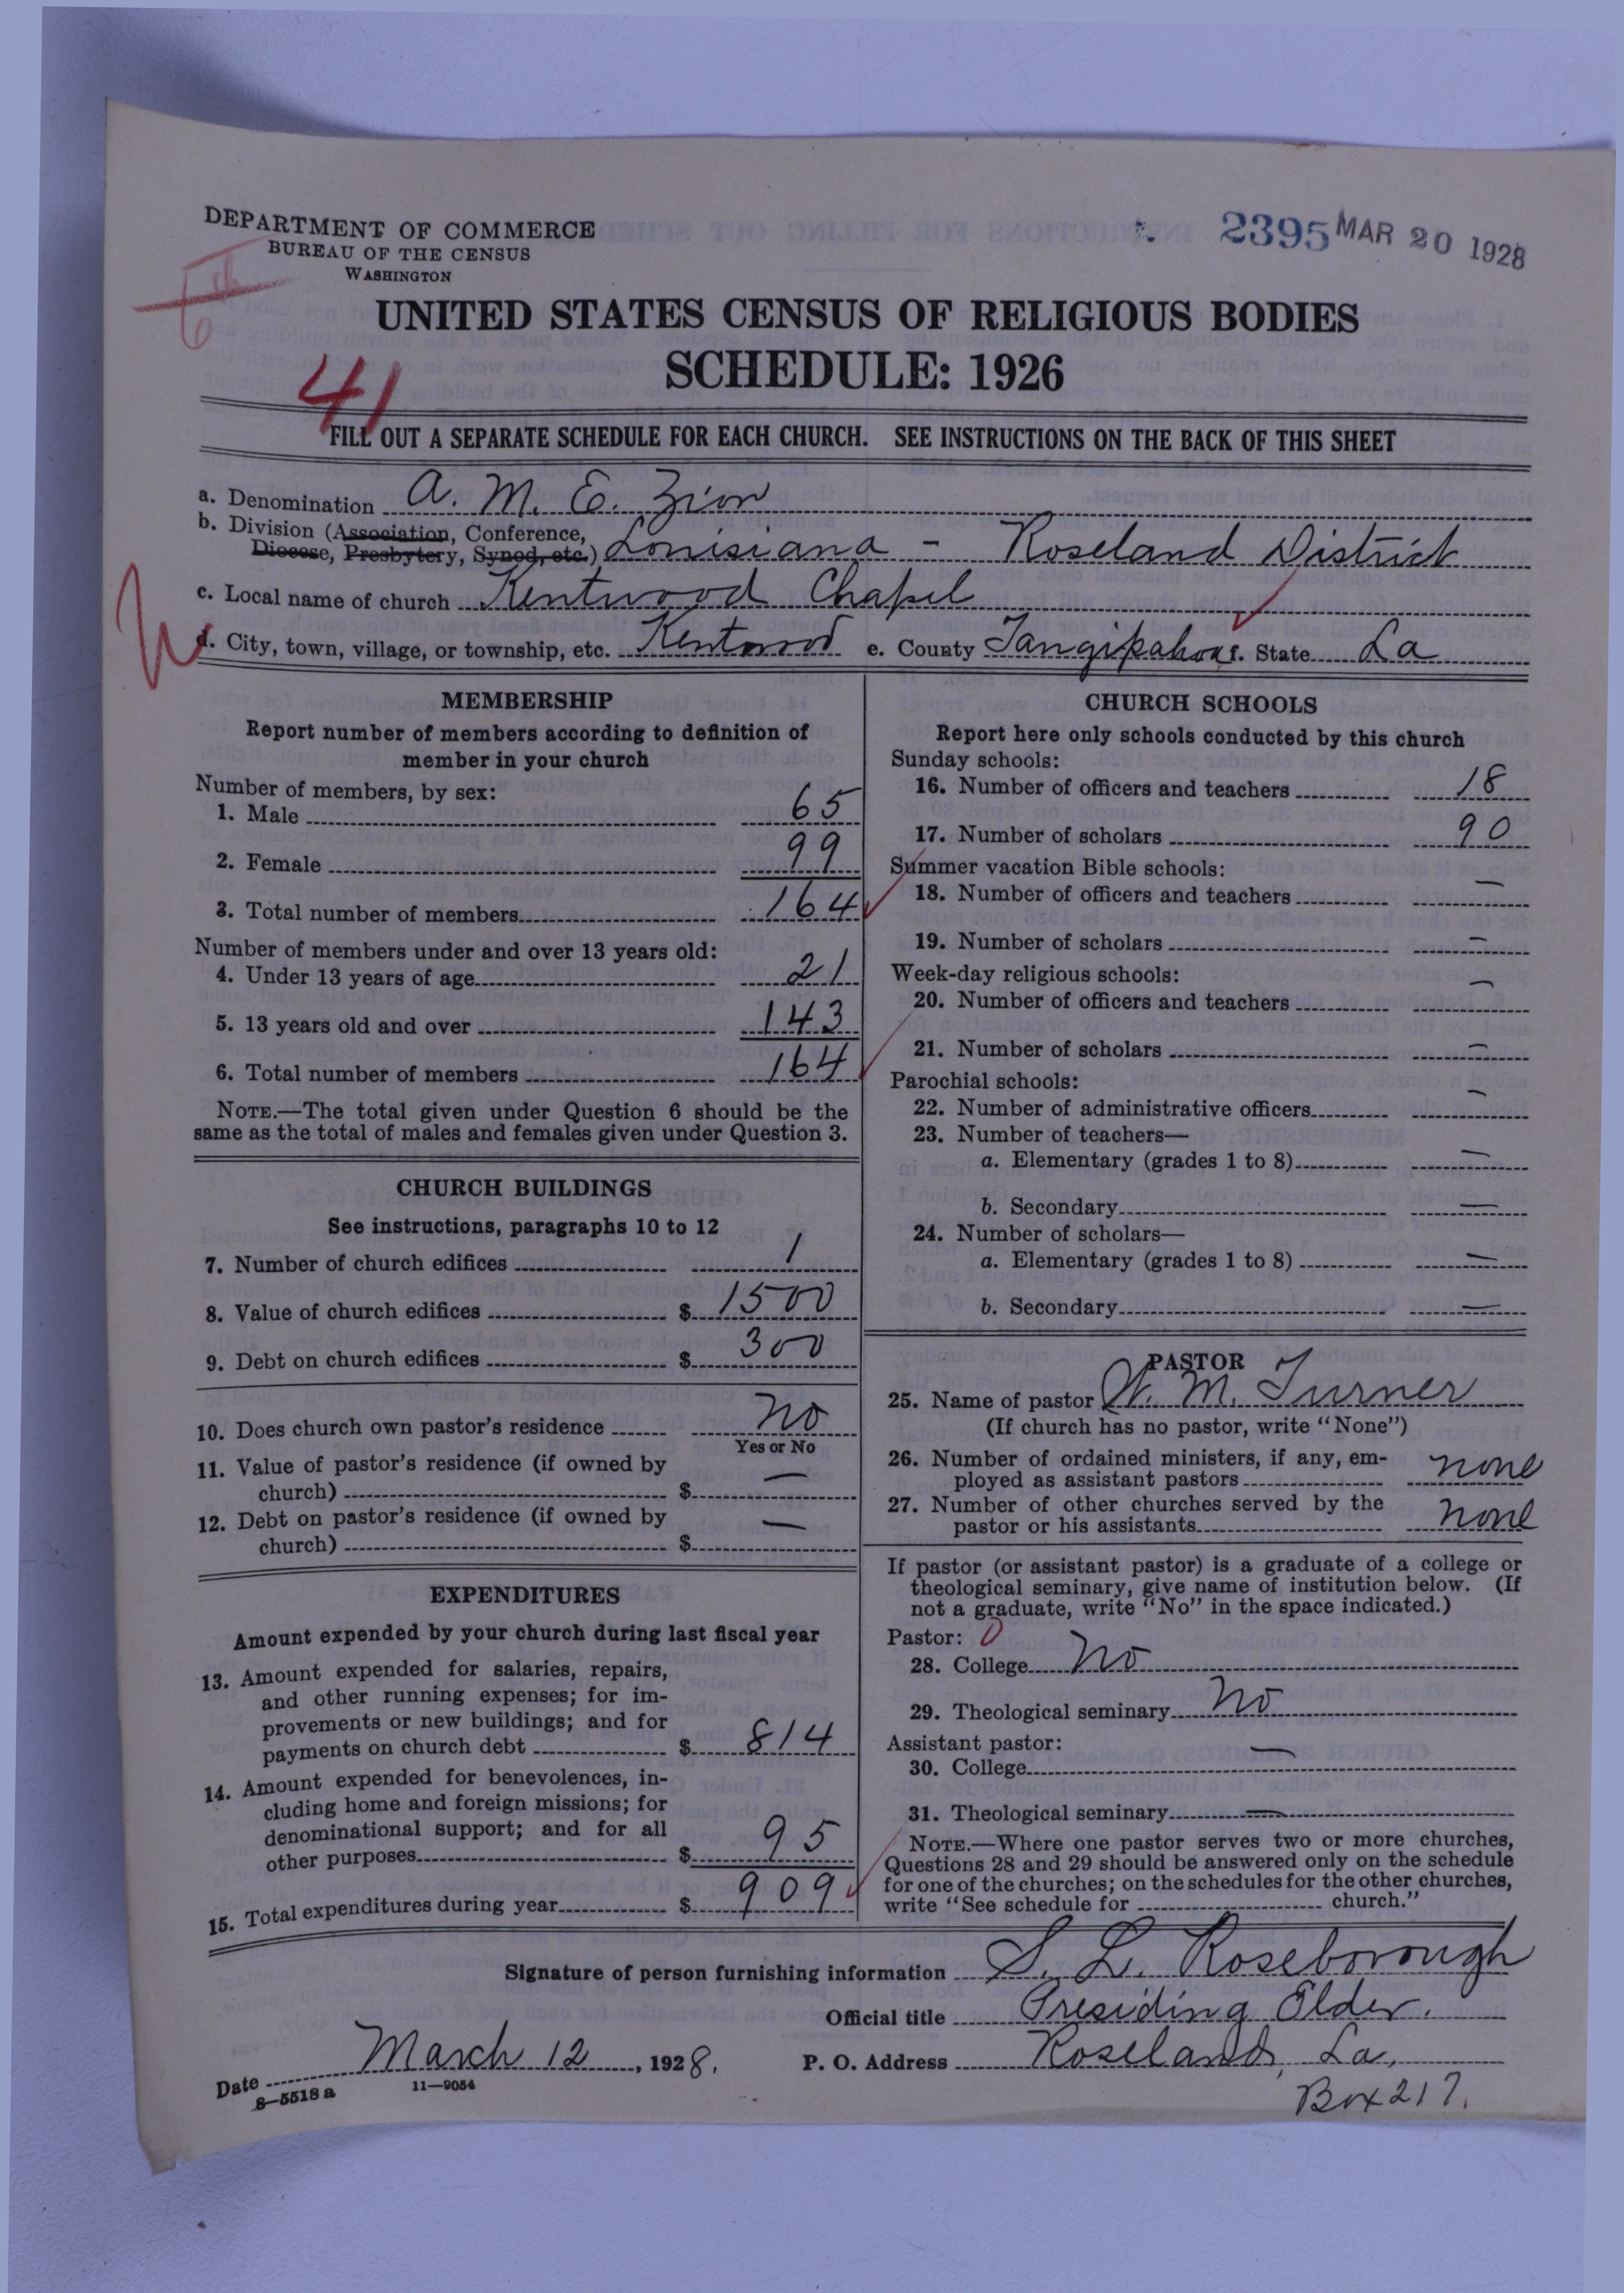 DEPARTMENT OF COMMERCE
BUREAU OF THE CENSUS
WASHINGTON
2395 MAR 20 1928
6th
UNITED STATES CENSUS OF RELIGIOUS BODIES
SCHEDULE: 1926
41
FILL OUT A SEPARATE SCHEDULE FOR EACH CHURCH. SEE INSTRUCTIONS ON THE BACK OF THIS SHEET
a. Denomination A. M. E. Zion
b. Division (Association, Conference,
Diocese, Presbytery, Synod, etc.) Louisiana - Roseland District
c. Local name of church Kentwood Chapel
d. City, town, village, or township, etc. Kentwood e. County Tangipahoa f. State La
MEMBERSHIP
Report number of members according to definition of
member in your church
Number of members, by sex:
1. Male 65
2. Female 99
3. Total number of members 164
Number of members under and over 13 years old:
4. Under 13 years of age 21
5. 13 years old and over 143
6. Total number of members 164
NOTE.—The total given under Question 6 should be the
same as the total of males and females given under Question 3.
CHURCH BUILDINGS
See instructions, paragraphs 10 to 12
7. Number of church edifices 1
8. Value of church edifices $ 1500
9. Debt on church edifices $ 300
10. Does church own pastor's residence No
Yes or No
11. Value of pastor's residence (if owned by
church) $ —
12. Debt on pastor's residence (if owned by
church) $ —
EXPENDITURES
Amount expended by your church during last fiscal year
13. Amount expended for salaries, repairs,
and other running expenses; for im-
provements or new buildings; and for
payments on church debt $ 814
14. Amount expended for benevolences, in-
cluding home and foreign missions; for
denominational support; and for all
other purposes $ 95
15. Total expenditures during year $ 909
CHURCH SCHOOLS
Report here only schools conducted by this church
Sunday schools:
16. Number of officers and teachers 18
17. Number of scholars 90
Summer vacation Bible schools:
18. Number of officers and teachers —
19. Number of scholars —
Week-day religious schools:
20. Number of officers and teachers —
21. Number of scholars —
Parochial schools:
22. Number of administrative officers —
23. Number of teachers—
a. Elementary (grades 1 to 8) —
b. Secondary —
24. Number of scholars—
a. Elementary (grades 1 to 8) —
b. Secondary —
PASTOR
25. Name of pastor W. M. Turner
(If church has no pastor, write "None")
26. Number of ordained ministers, if any, em-
ployed as assistant pastors none
27. Number of other churches served by the
pastor or his assistants none
If pastor (or assistant pastor) is a graduate of a college or
theological seminary, give name of institution below. (If
not a graduate, write "No" in the space indicated.)
Pastor: 0
28. College No
29. Theological seminary No
Assistant pastor:
30. College —
31. Theological seminary —
NOTE.—Where one pastor serves two or more churches,
Questions 28 and 29 should be answered only on the schedule
for one of the churches; on the schedules for the other churches,
write "See schedule for church."
Signature of person furnishing information S. L. Roseborough
Official title Presiding Elder.
Date March 12, 1928. P. O. Address Roseland, La,
8—5518 a 11—9054
Box 217.